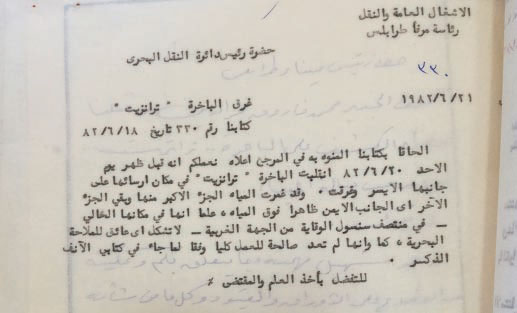 الاشغال العامة والنقل
رئاسة مرفأ طرابلس
حضرة رئيس دائرة النقل البحرى
٣٣٠
١٩٨٢/٦/٢١
غرق الباخرة " ترانزيت "
كتابنا رقم ٣٣٠ تاريخ ٨٢/٦/١٨
الحاقا بكتابنا المنوه به في المرجع اعلاه نعلمكم انه قبل ظهر يوم
الاحد ٨٢/٦/٢٠ انقلبت الباخرة " ترانزيت " في مكان ارسائها على
جانبها الايسر وغرقت ٠ وقد غمرت المياه الجزء الاكبر منها وبقي الجزء
الاخر اى الجانب الايمن ظاهرا فوق المياه ، علما انها في مكانها الحالي
ـ في منتصف سنسول الوقاية من الجهة الغربية ـ لا تشكل اى عائق للملاحة
البحرية ، كما وانها لم تعد صالحة للعمل كليا وفقا لما جاء في كتابي الآنف
الذكر ٠
للتفضل بأخذ العلم والمقتضى ٪